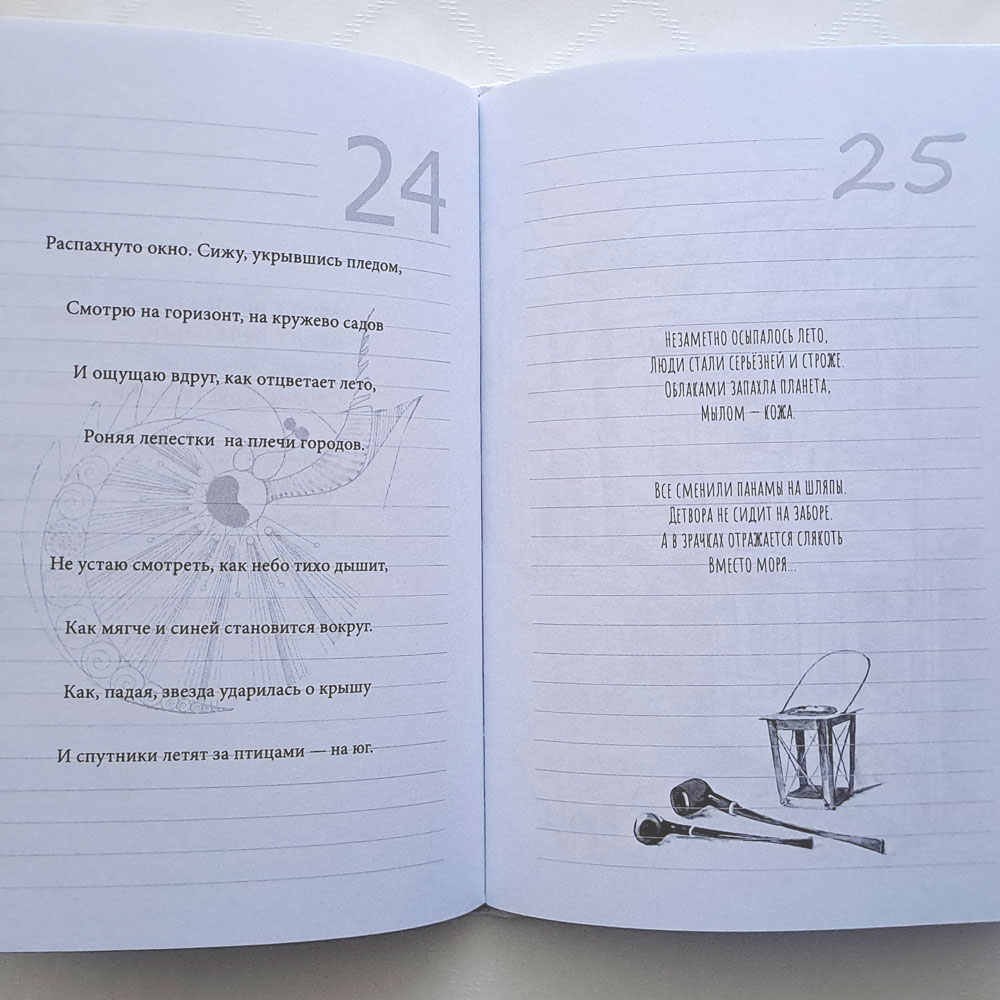 24
Распахнуто окно. Сижу, укрывшись пледом,
Смотрю на горизонт, на кружево садов
И ощущаю вдруг, как отцветает лето,
Роняя лепестки на плечи городов.
Не устаю смотреть, как небо тихо дышит,
Как мягче и синей становится вокруг.
Как, падая, звезда ударилась о крышу
И спутники летят за птицами — на юг.
25
Незаметно осыпалось лето,
Люди стали серьёзней и строже.
Облаками запахла планета,
Мылом – кожа.
Все сменили панамы на шляпы.
Детвора не сидит на заборе.
А в зрачках отражается слякоть
Вместо моря...